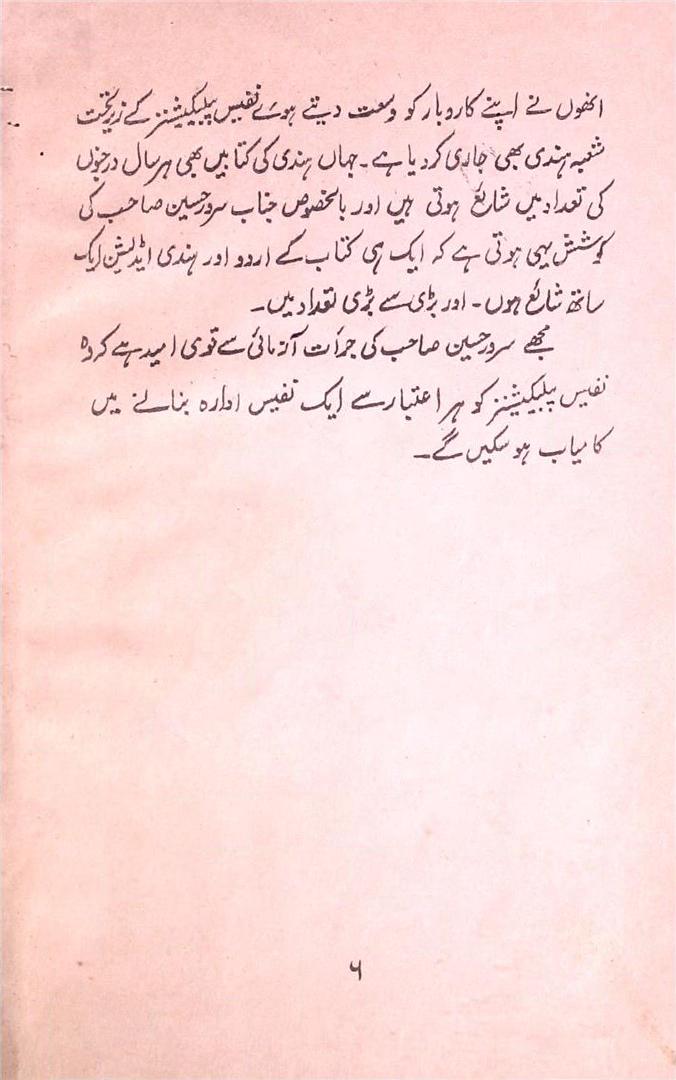 انھوں نے اپنے کاروبار کو وسعت دیتے ہوئے نفیس پبلیکیشنز کے زیر تحت
شعبہ ہندی بھی جاری کر دیا ہے۔ جہاں ہندی کی کتابیں بھی ہر سال درجنوں
کی تعداد میں شایع ہوتی ہیں اور بالخصوص جناب سرور حسین صاحب کی
کوشش یہی ہوتی ہے کہ ایک ہی کتاب کے اردو اور ہندی ایڈیشن ایک
ساتھ شائع ہوں۔ اور بڑی سے بڑی تعداد میں۔
مجھے سرور حسین صاحب کی جرأت آزمائی سے قوی امید ہے کہ وہ
نفیس پبلیکیشنز کو ہر اعتبار سے ایک نفیس ادارہ بنانے میں
کامیاب ہو سکیں گے۔
۶